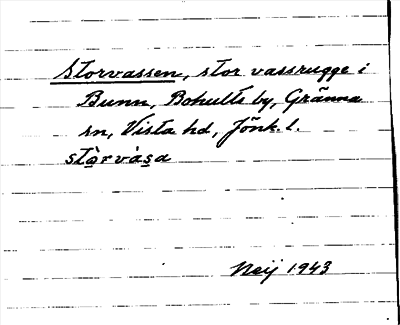 Storvassen, stor vassrugge i
Bunn, Bohults by, Gränna
sn, Vista hd, Jönk. l.
stòrvàsa
Neij 1943